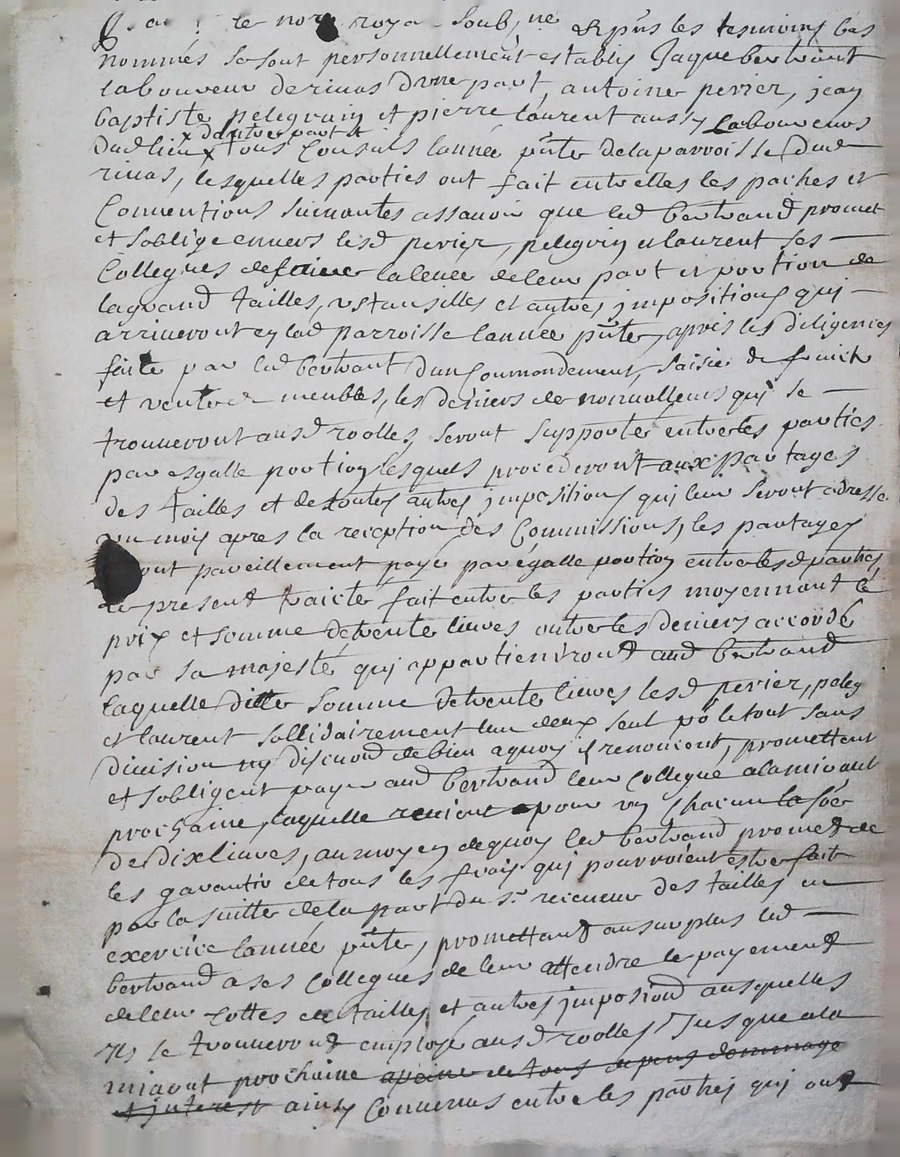 le nore roya soub,ne & pñs les tesmoins bas
nommés se sont personnellement establis Jaque bertrant
laboureur de rinas d'une part, antoine perier, jean
baptiste pelegrain et pierre laurent aussy laboureurs
x d'autre part et
dud lieu x tous Consuls lannée pñte delaparroisse dud
rinas, lesquelles parties ont fait entrelles les paches et
Conventions suivantes assavoir que led bertrand promet
et soblige envers lesd perier, pelegrin et laurent ses
Collegues de faire la levée de leur part et portion de
lagrand tailles, ustansilles et autres jmpositions qui
arriveront en lad parroisse lannée pñte, apres les diligences
faite par led bertrant d'un Commandement, saisie de fruict
et vente de meubles, les deniers de nonvalleurs qui se
trouveront ausd roolles seront supportés entre les parties
par esgalle portion lesquels procederont aux partages
des tailles et de toutes autres jmpositions qui leur seront adresse
un mois apres la reception des Commissions, les partages
ront pareillement payé par egalle portion entre lesd parties
le present traicté fait entre les parties moyennant le
prix et somme de trente livres outre les deniers accordé
par sa majesté qui appartiendront aud bertrand
laquelle ditte somme de trente livres lesd perier, peleg
et laurent sollidairement lun deux seul po le tout sans
division ny discund de bien aquoy jl renoncent, promettent
et sobligent payer aud bertrand leur Collegue alamioust
prochaine, laquelle revient pour un chacun la soe
de dix livres, aumoyen dequoy led bertrand promet de
les garantir de tous les frais qui pourroient estre fait
par la suitte de la part du sr receveur des tailles en
exercice lannée pñte, promettand au surplus led
bertrand a ses Collegues de leur attendre le payement
de leur Cottes de tailles et autres jmposiond ausquelles
jls se trouveront employé ausd roolles Jusque ala
mioout prochaine apeine de tous depens dommage
et jnterest ainsy Convenus entre les parties qui ont